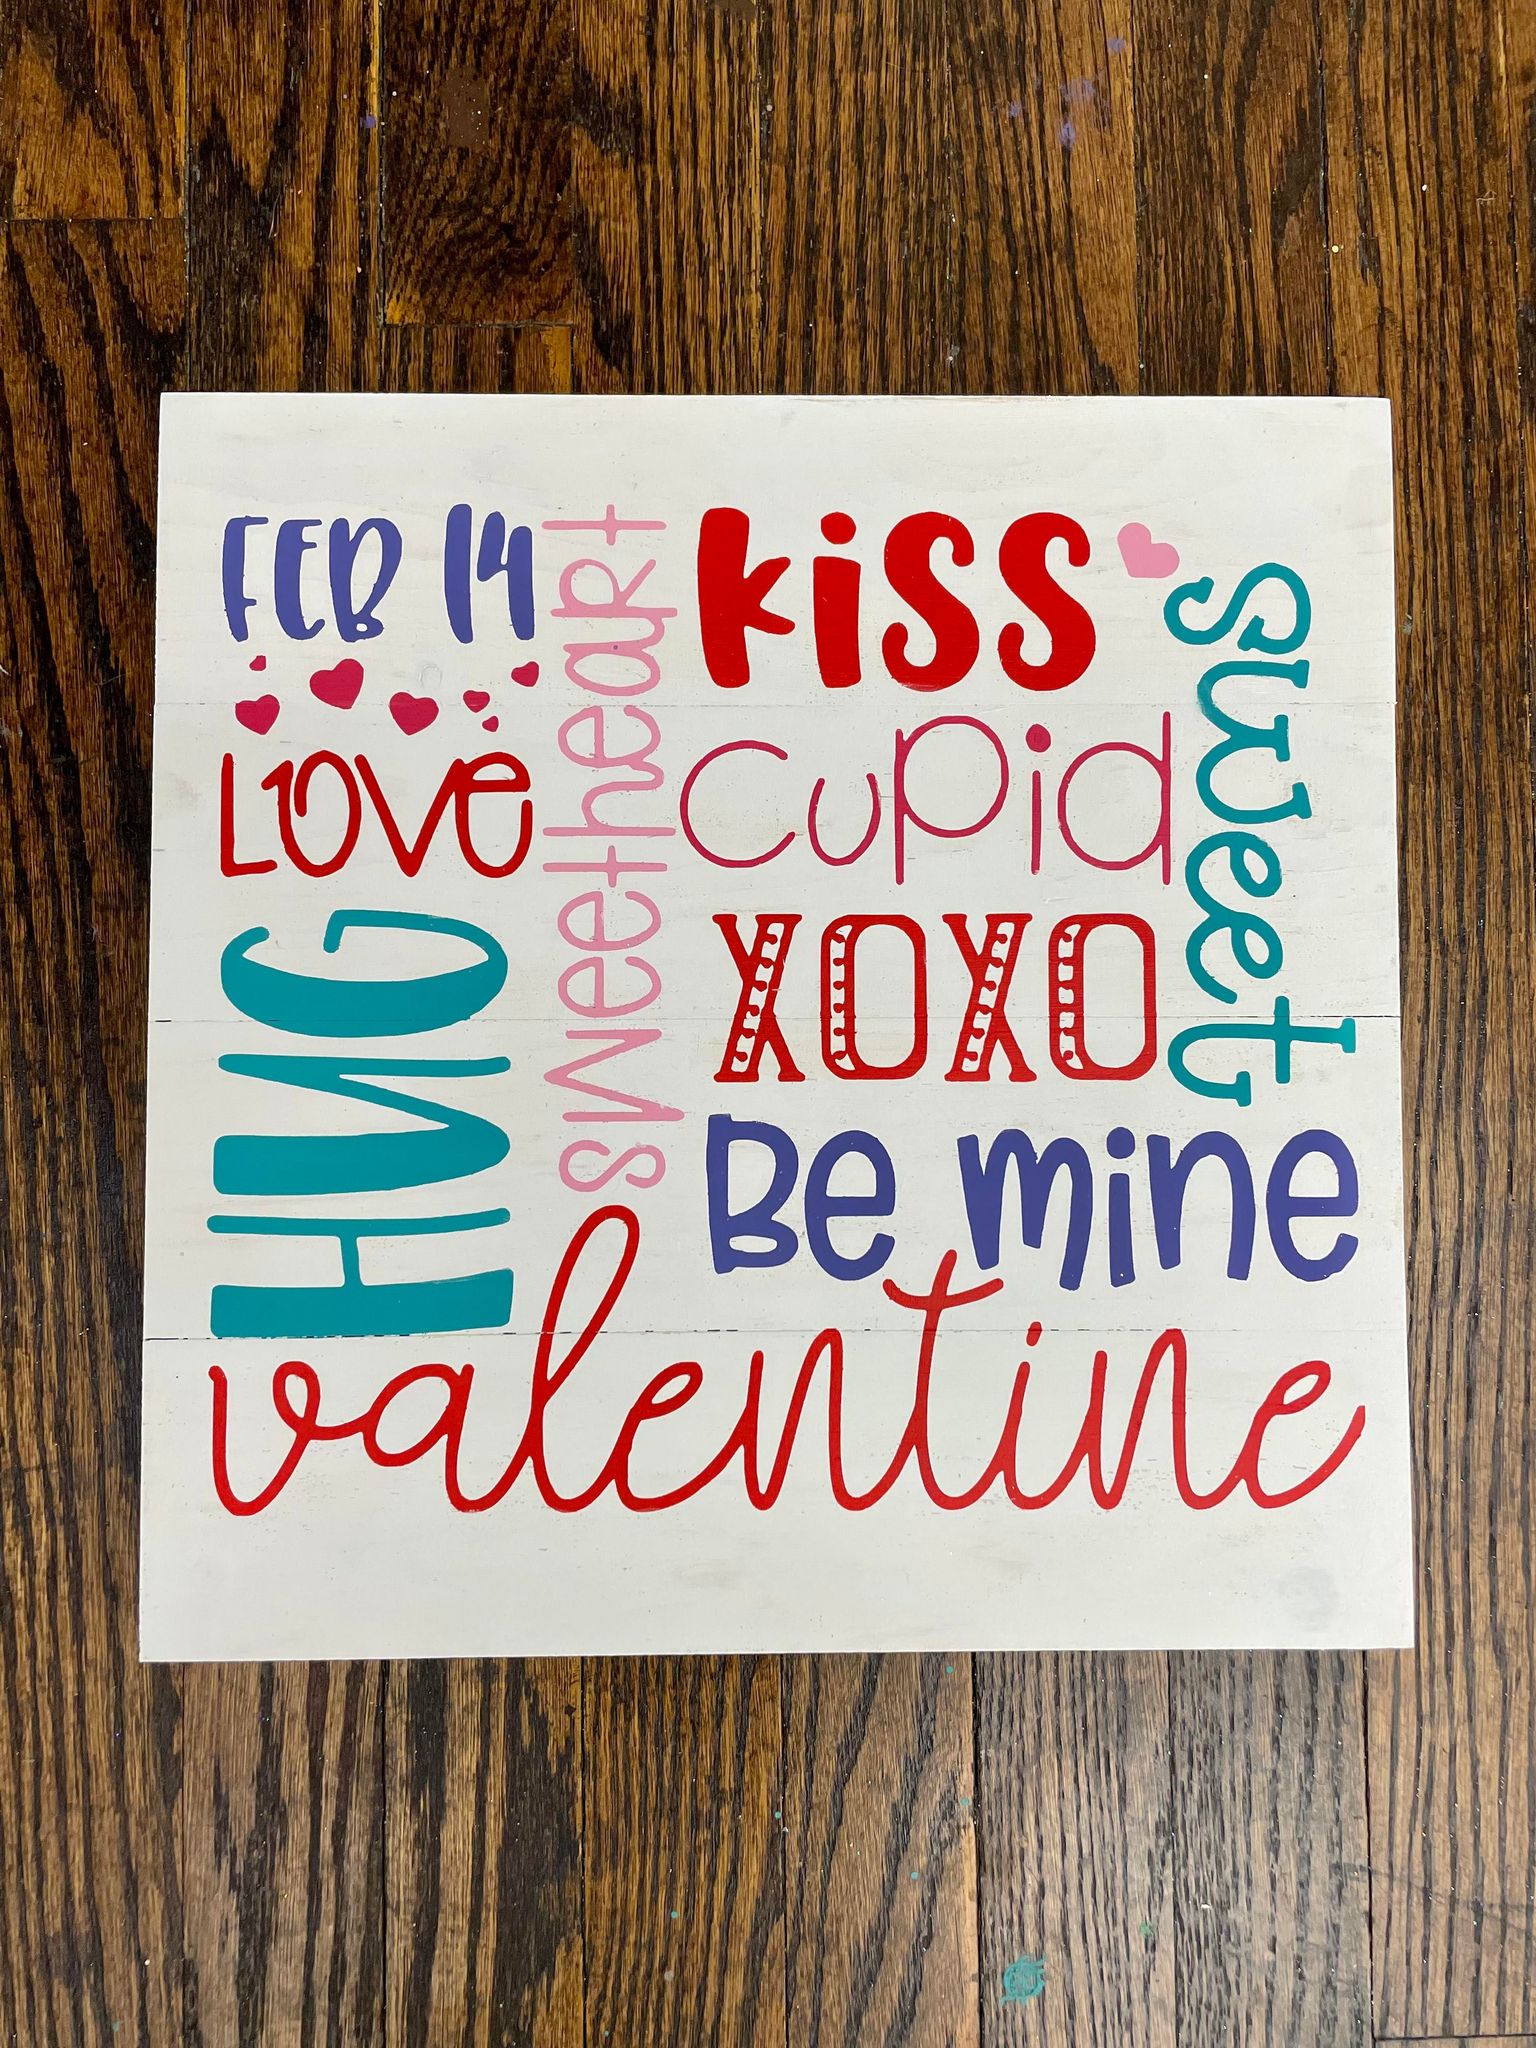 FEB 14
LOVE
HUG
sweetheart
kiss
cupid
XOXO
sweet
Be mine
valentine